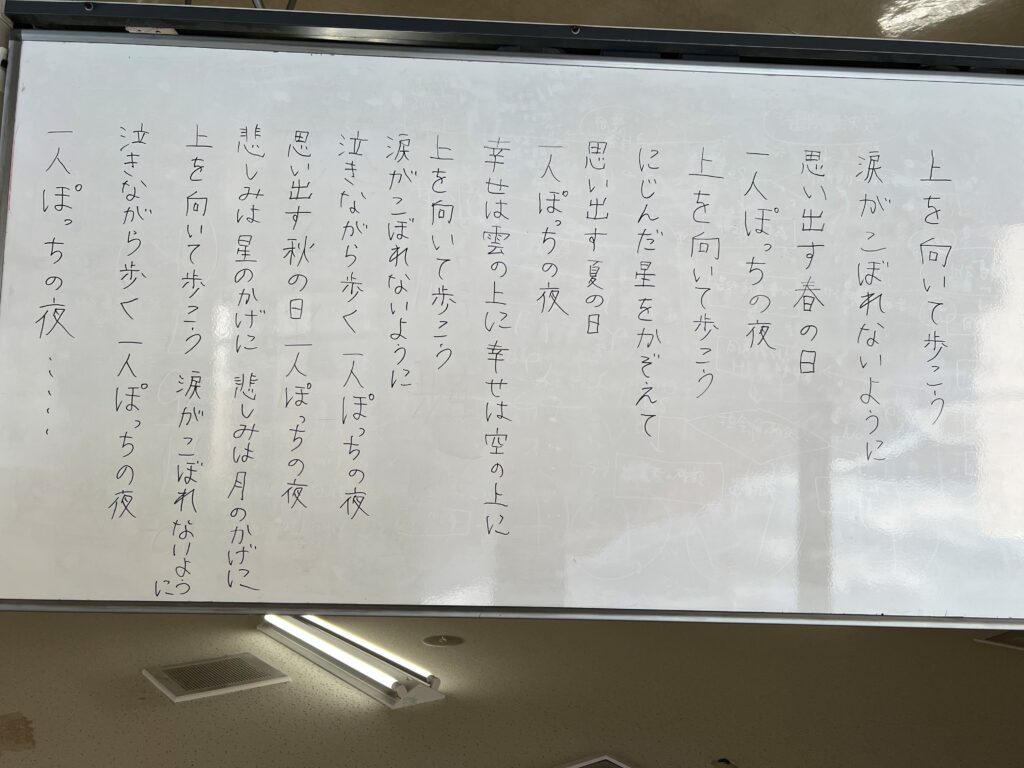 上を向いて歩こう
涙がこぼれないように
思い出す春の日
一人ぽっちの夜
上を向いて歩こう
にじんだ星をかぞえて
思い出す夏の日
一人ぽっちの夜
幸せは雲の上に 幸せは空の上に
上を向いて歩こう
涙がこぼれないように
泣きながら歩く 一人ぽっちの夜
思い出す秋の日 一人ぽっちの夜
悲しみは星のかげに 悲しみは月のかげに
上を向いて歩こう 涙がこぼれないように
泣きながら歩く 一人ぽっちの夜
一人ぽっちの夜・・・・・